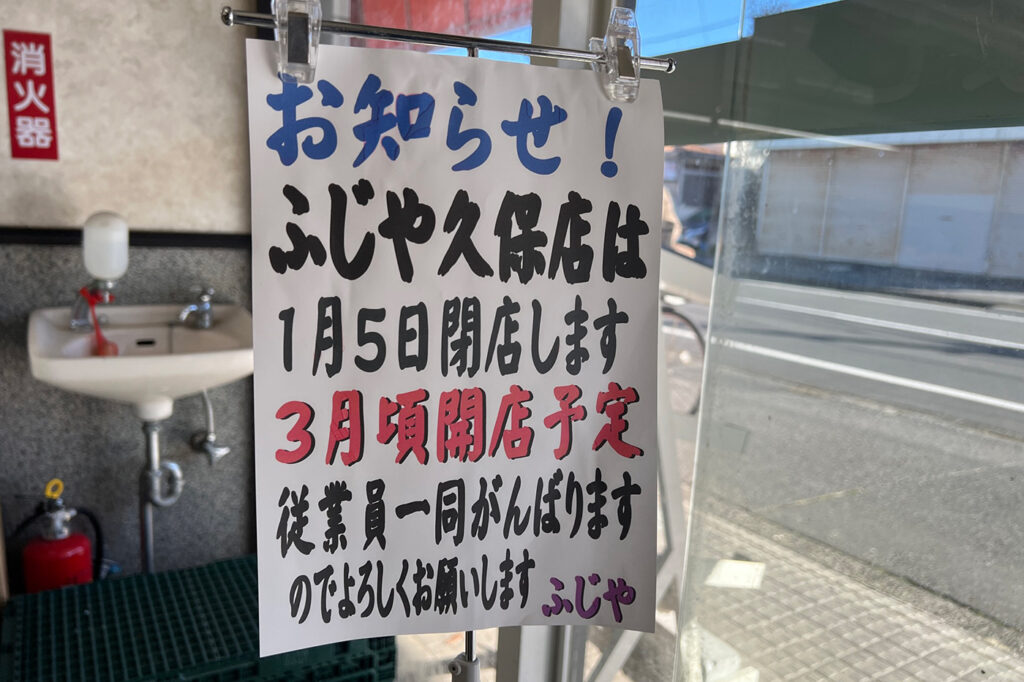 消火器
お知らせ！
ふじや久保店は
1月5日閉店します
3月頃開店予定
従業員一同がんばります
のでよろしくお願いします
ふじや